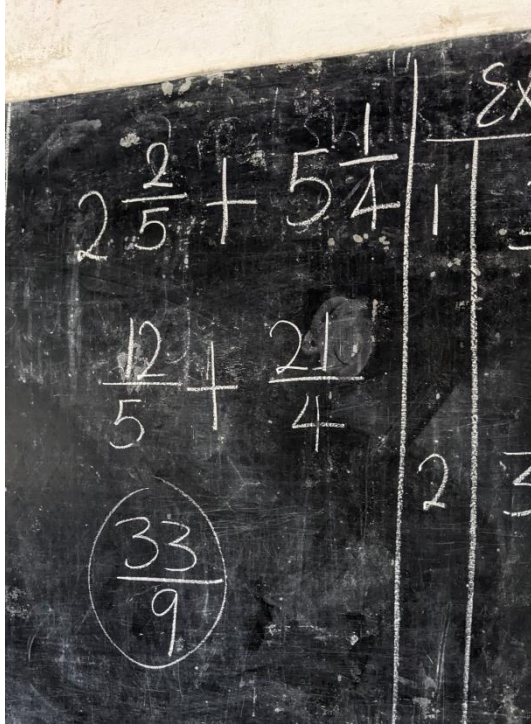 2 2/5 + 5 1/4
12/5 + 21/4
33/9
Ex
1
2 3